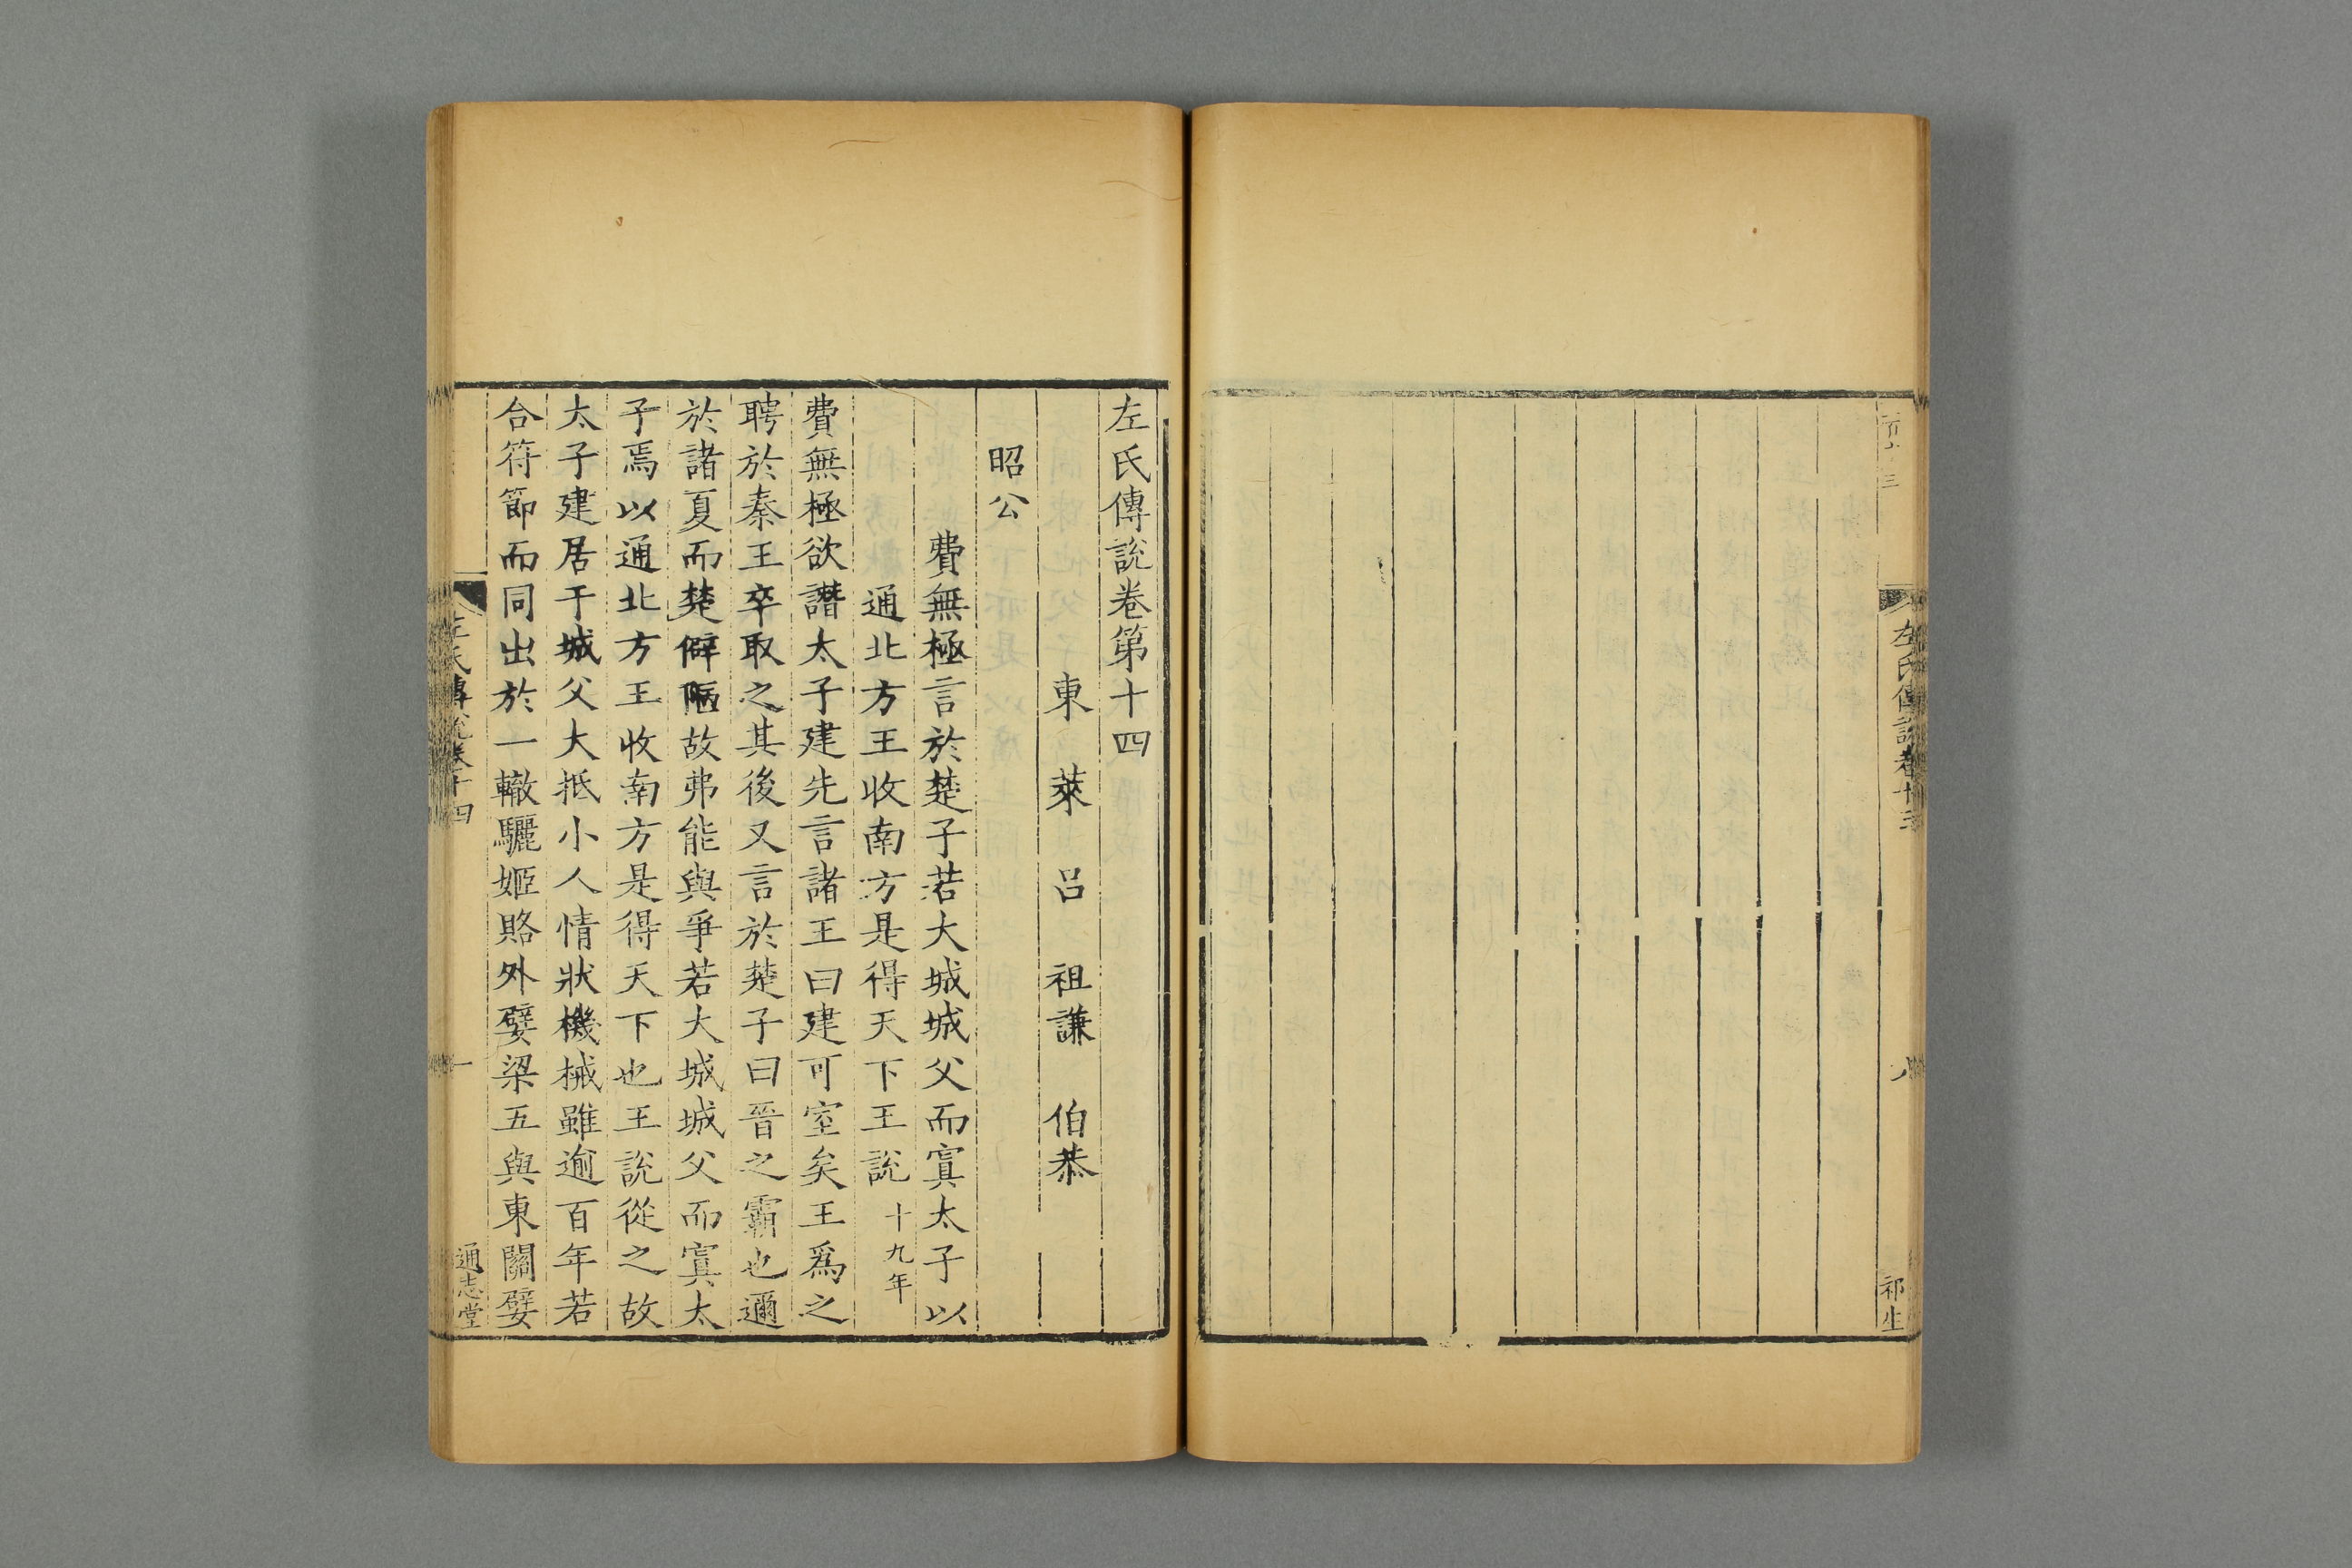 左氏傳說卷十三
八
祁生
左氏傳說卷第十四
東萊呂祖謙伯恭
昭公
費無極言於楚子若大城城父而寘太子以
通北方王收南方是得天下王說十九年
費無極欲譖太子建先言諸王曰建可室矣王爲之
聘於秦王卒取之其後又言於楚子曰晉之霸也邇
於諸夏而楚僻陋故弗能與爭若大城城父而寘太
子焉以通北方王收南方是得天下也王說從之故
太子建居于城父大抵小人情狀機械雖逾百年若
合符節而同出於一轍驪姬賂外嬖梁五與東關嬖
左氏傳說卷十四
一
通志堂